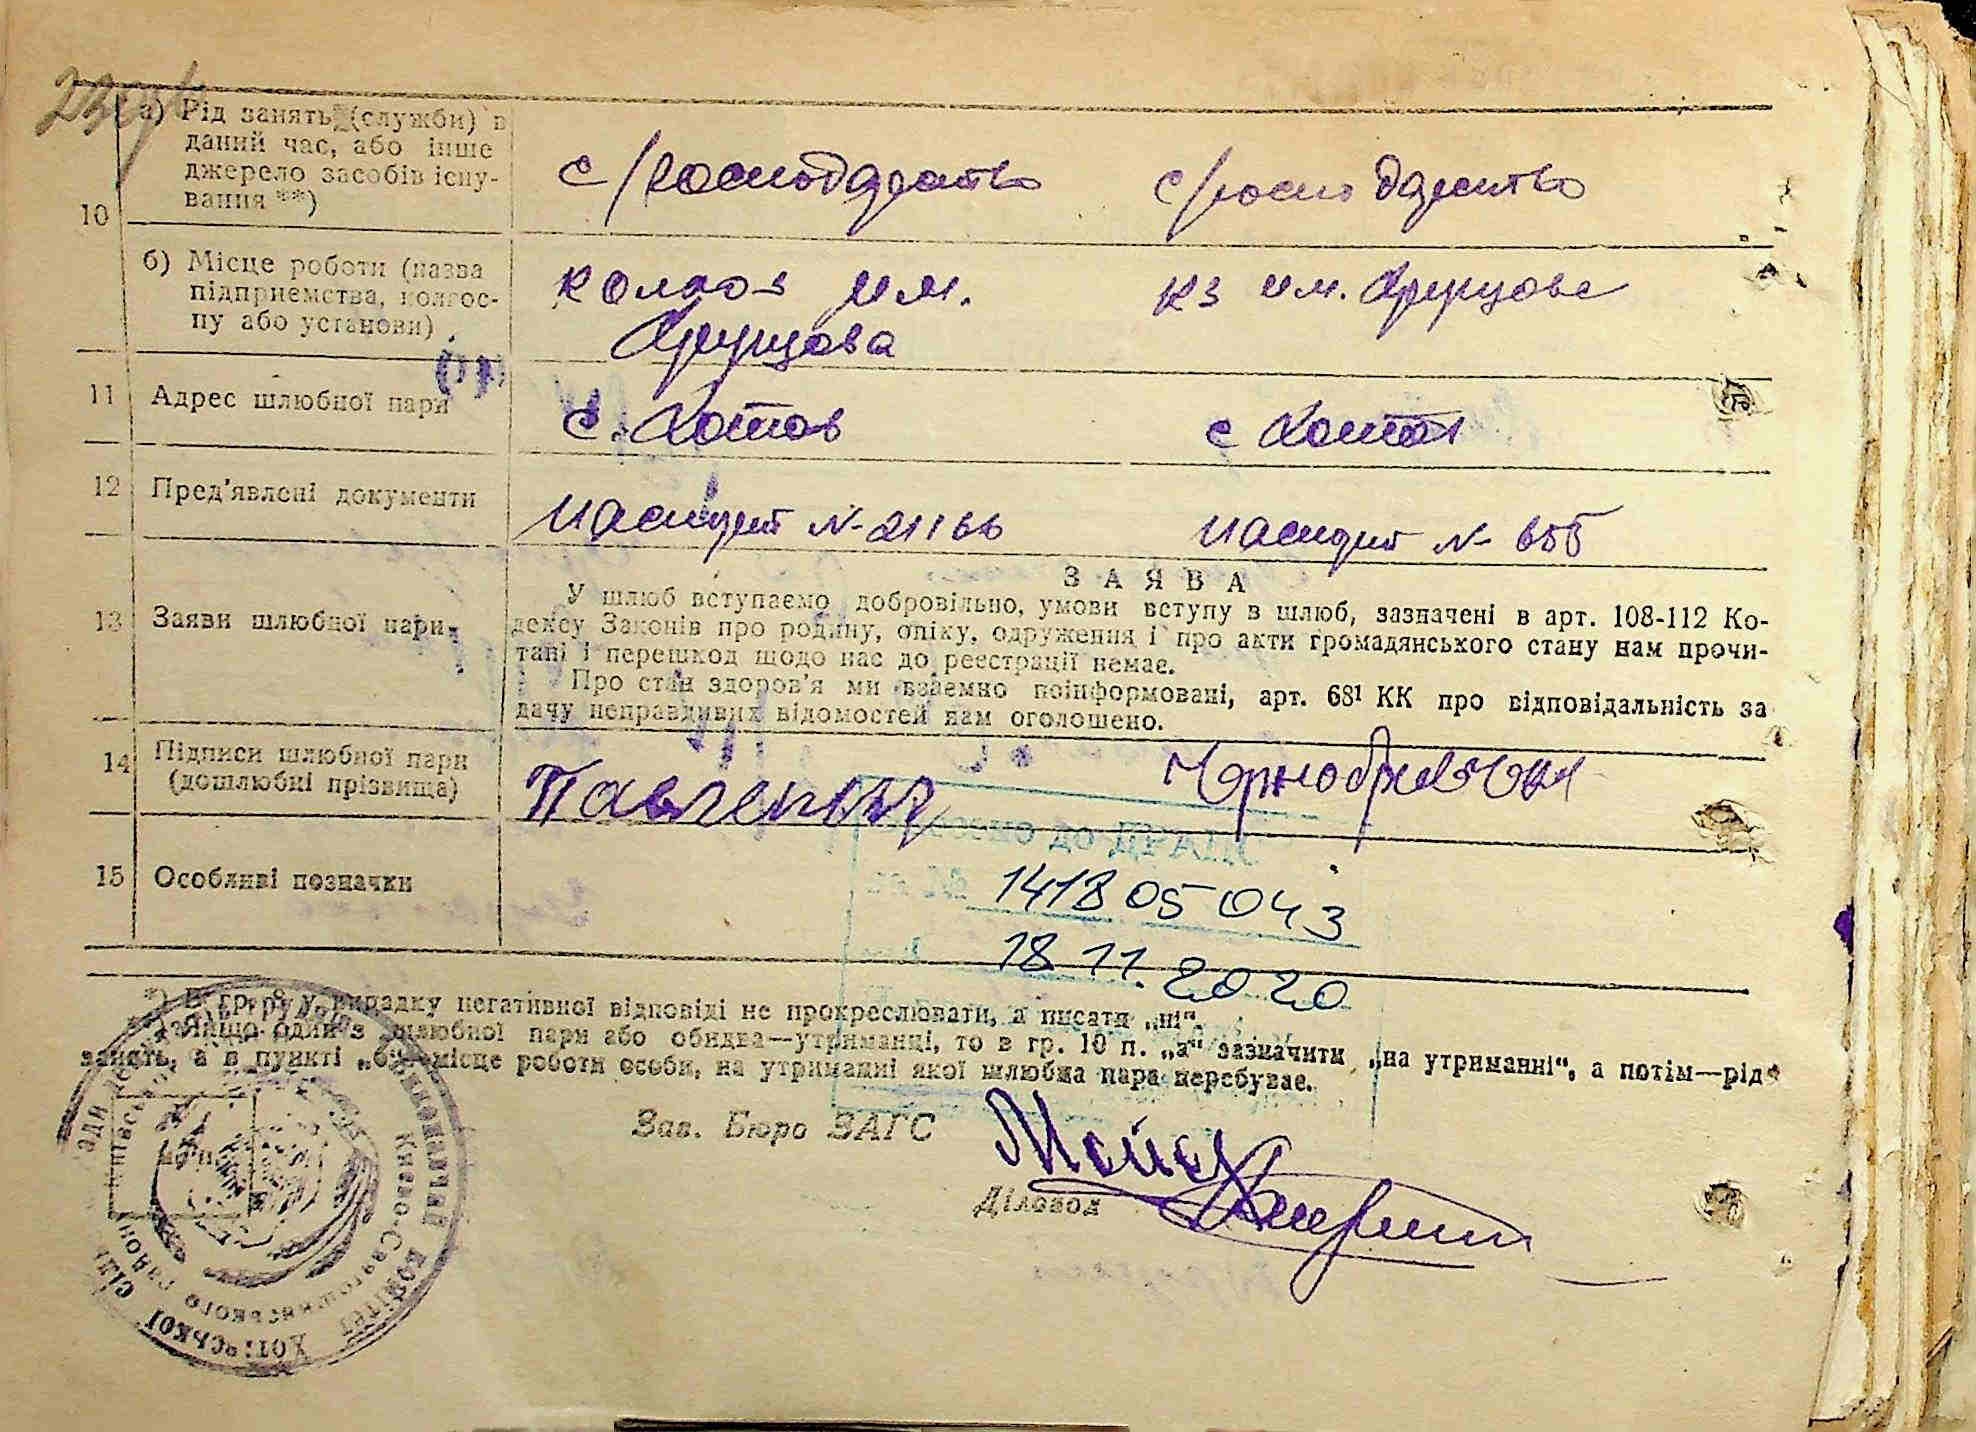 10
а) Рід занять (служби) в
даний час, або інше
джерело засобів існу-
вання **)
с/господарство
с/господарство
б) Місце роботи (назва
підприємства, колгос-
пу або установи)
колгос им.
Хрущова
кз им. Хрущова
11
Адрес шлюбної пари
с. Хотов
с Хотов
12
Пред'явлені документи
паспорт № 21166
паспорт № 655
13
Заяви шлюбної пари
ЗАЯВА
У шлюб вступаємо добровільно, умови вступу в шлюб, зазначені в арт. 108-112 Ко-
дексу Законів про родину, опіку, одруження і про акти громадянського стану нам прочи-
тані і перешкод щодо нас до реєстрації немає.
Про стан здоров'я ми взаємно поінформовані, арт. 68¹ КК про відповідальність за
дачу неправдивих відомостей нам оголошено.
14
Підписи шлюбної пари
(дошлюбні прізвища)
Павленко
Чорнобривая
15
Особливі позначки
до ДРАЦС
1418 05 04 3
18.11.2020
*) В гр. 8 у випадку негативної відповіді не прокреслювати, а писати „ні“.
**) Якщо один з шлюбної пари або обидва—утриманці, то в гр. 10 п. „а“ зазначити „на утриманні“, а потім—рід
занять, а в пункті „б“—місце роботи особи, на утриманні якої шлюбна пара перебуває.
Зав. Бюро ЗАГС
Діловод
Виконавчий комітет Хотівської сільради
Києво-Святошинського району